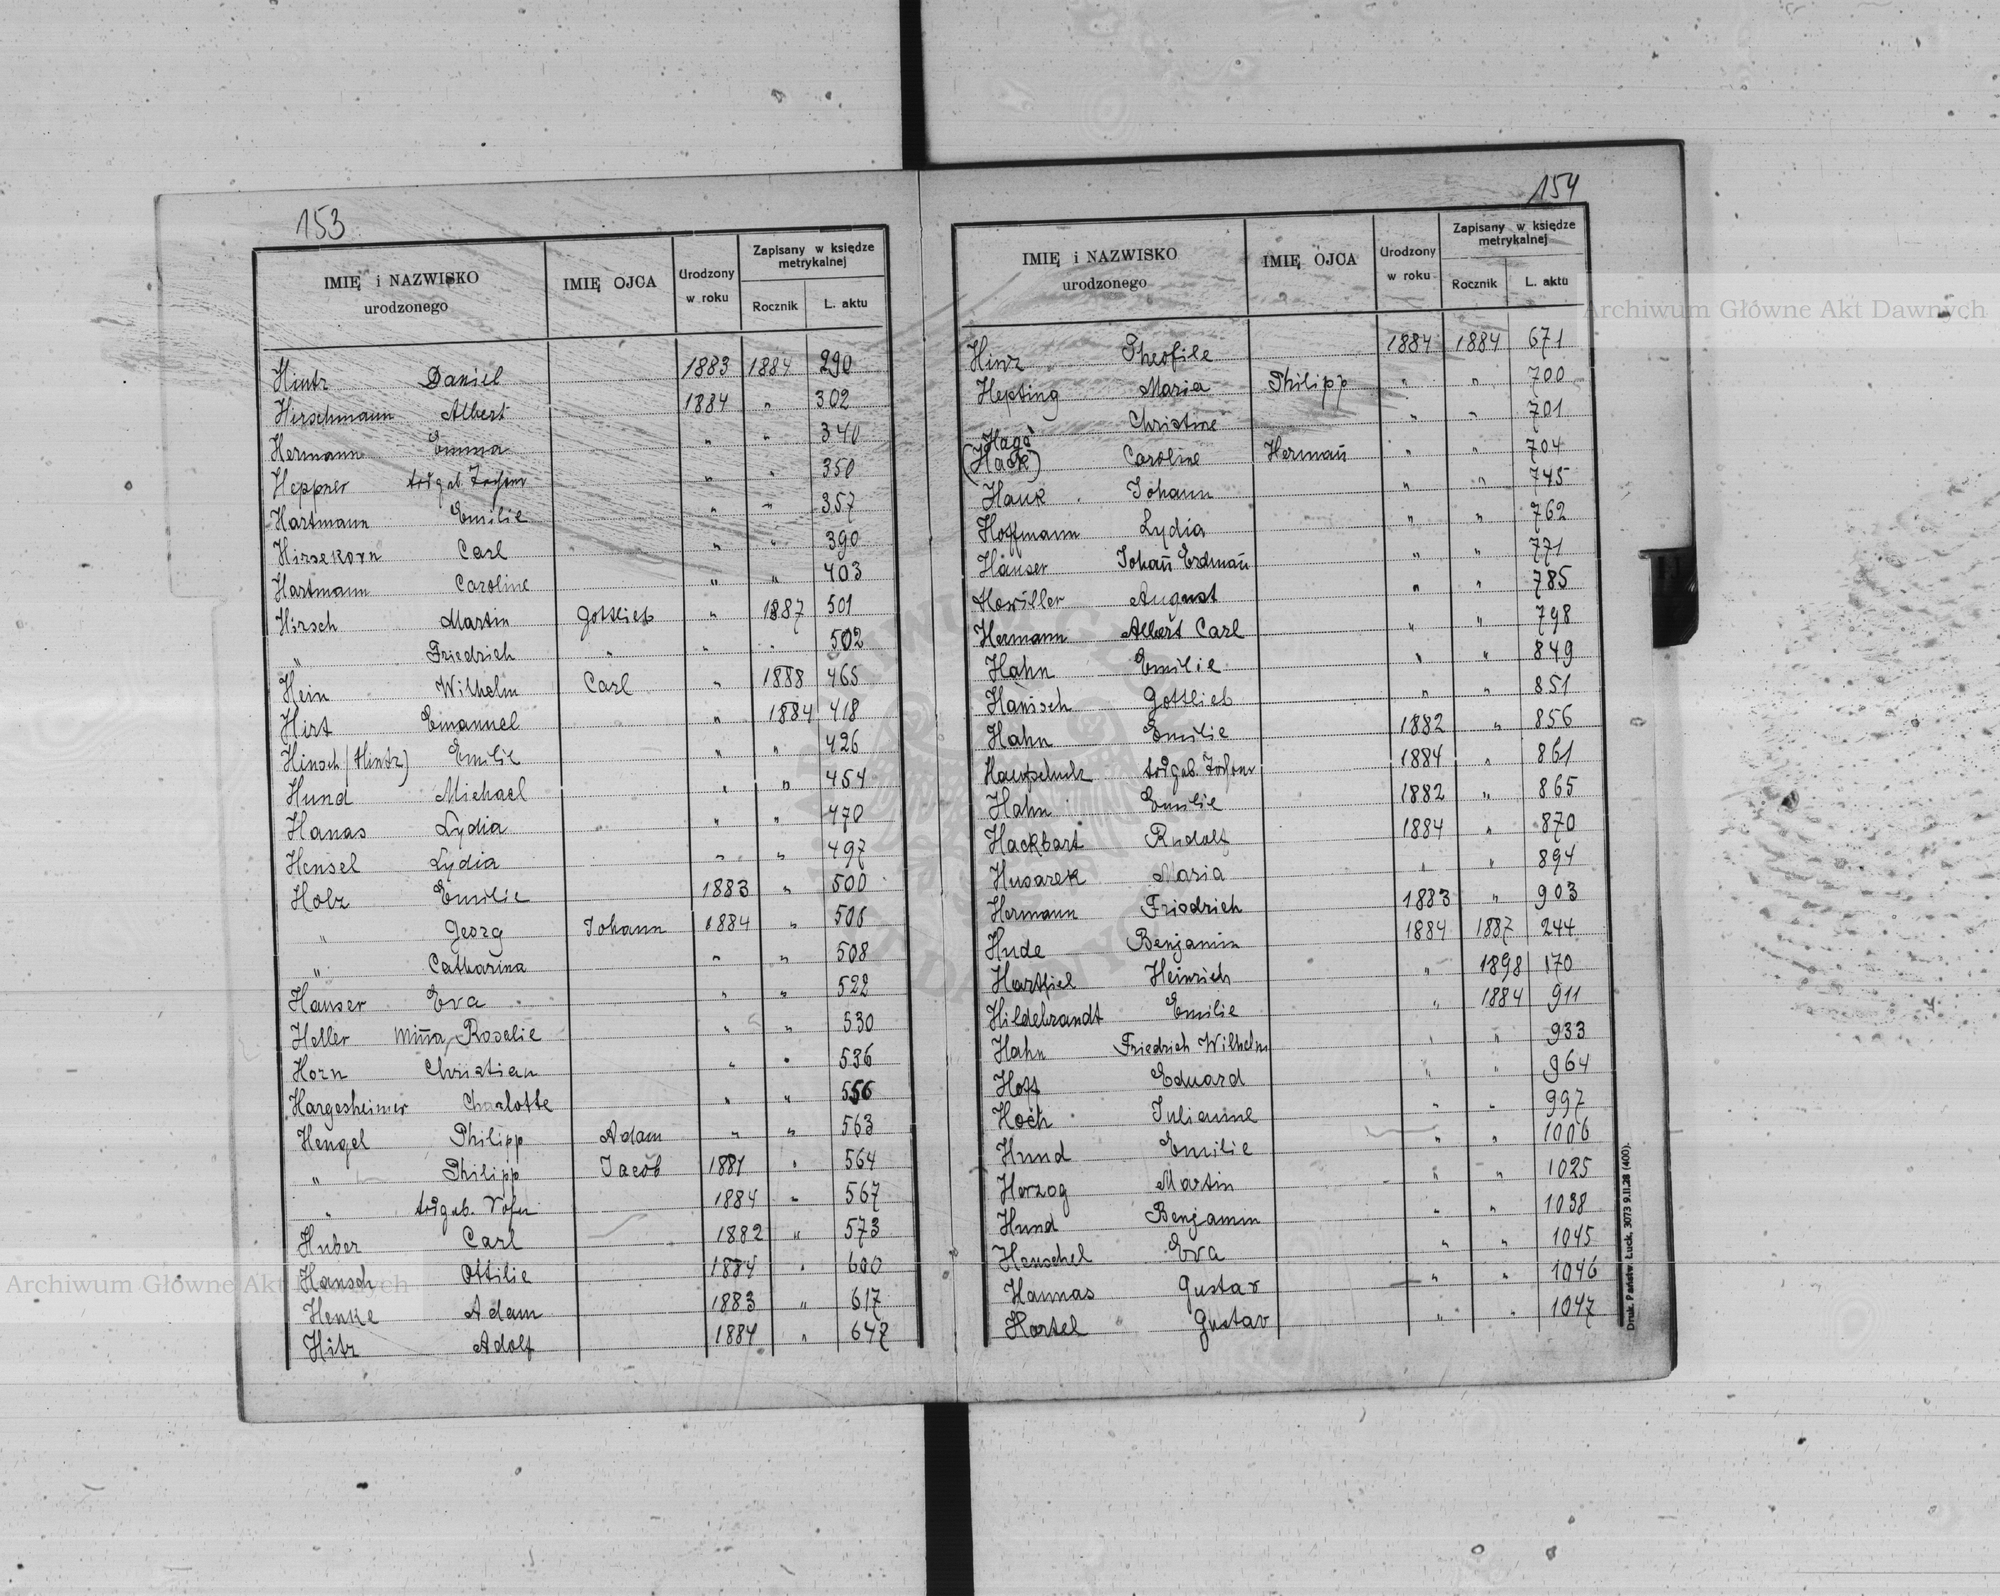 153
IMIĘ i NAZWISKO urodzonego IMIĘ OJCA Urodzony w roku Zapisany w księdze metrykalnej Rocznik L. aktu
Hintz Daniel 1883 1884 290
Herschmann Albert 1884 " 302
Hermann Emma " " 340
Heppner totgeb. Tochter " " 350
Hartmann Emilie " " 357
Hirsekorn Carl " " 390
Hartmann Caroline " " 403
Hirsch Martin Gottlieb " 1887 501
" Friedrich " " " 502
Hein Wilhelm Carl " 1888 465
Hirt Emanuel " 1884 418
Hinsch (Hintz) Emilie " " 426
Hund Michael " " 454
Hanas Lydia " " 470
Hensel Lydia " " 497
Holz Emilie 1883 " 500
" Georg Johann 1884 " 506
" Catharina " " 508
Hauser Eva " " 522
Heller Mina, Rosalie " " 530
Horn Christian " " 536
Hargesheimer Charlotte " " 556
Hengel Philipp Adam " " 563
" Philipp Jacob 1881 " 564
" totgeb. Sohn 1884 " 567
Huber Carl 1882 " 573
Hansch Ottilie 1884 " 600
Henke Adam 1883 " 617
Hitz Adolf 1884 " 647
154
IMIĘ i NAZWISKO urodzonego IMIĘ OJCA Urodzony w roku Zapisany w księdze metrykalnej Rocznik L. aktu
Hinz Theofile 1884 1884 671
Hepting Maria Philipp " " 700
Christine " " 701
Hage
(Hack) Caroline Hermañ " " 704
Hauk Johann " " 745
Hoffmann Lydia " " 762
Häuser Johañ Erdmañ " " 771
August " " 785
Hermann Albert Carl " " 798
Hahn Emilie " " 849
Hanisch Gottlieb " " 851
Hahn Emilie 1882 " 856
totgeb. Tochter 1884 " 861
Hahn Emilie 1882 " 865
Hackbart Rudolf 1884 " 870
Husarek Maria " " 894
Hermann Friedrich 1883 " 903
Hude Benjamin 1884 1887 244
Hartfiel Heinrich " 1898 170
Hildebrandt Emilie " 1884 911
Hahn Friedrich Wilhelm " " 933
Hoff Eduard " " 964
Hoch Julianne " " 997
Hund Emilie " " 1006
Herzog Martin " " 1025
Hund Benjamin " " 1038
Henschel Eva " " 1045
Hannas Gustav " " 1046
Hartel Gustav " " 1047
Druk. Państw. Łuck, 3073 9.II.28 (400).
Archiwum Główne Akt Dawnych
Archiwum Główne Akt Dawnych